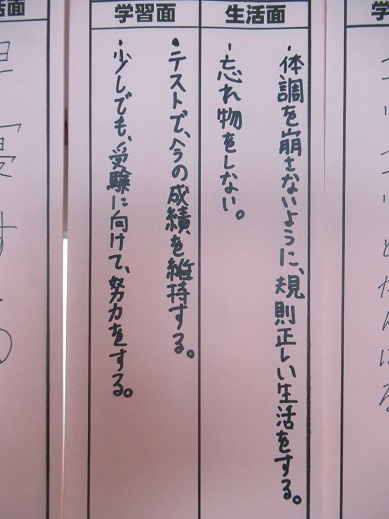 生活面
・体調を崩さないように、規則正しい生活をする。
・忘れ物をしない。
学習面
・テストで、今の成績を維持する。
・少しでも、受験に向けて、努力をする。